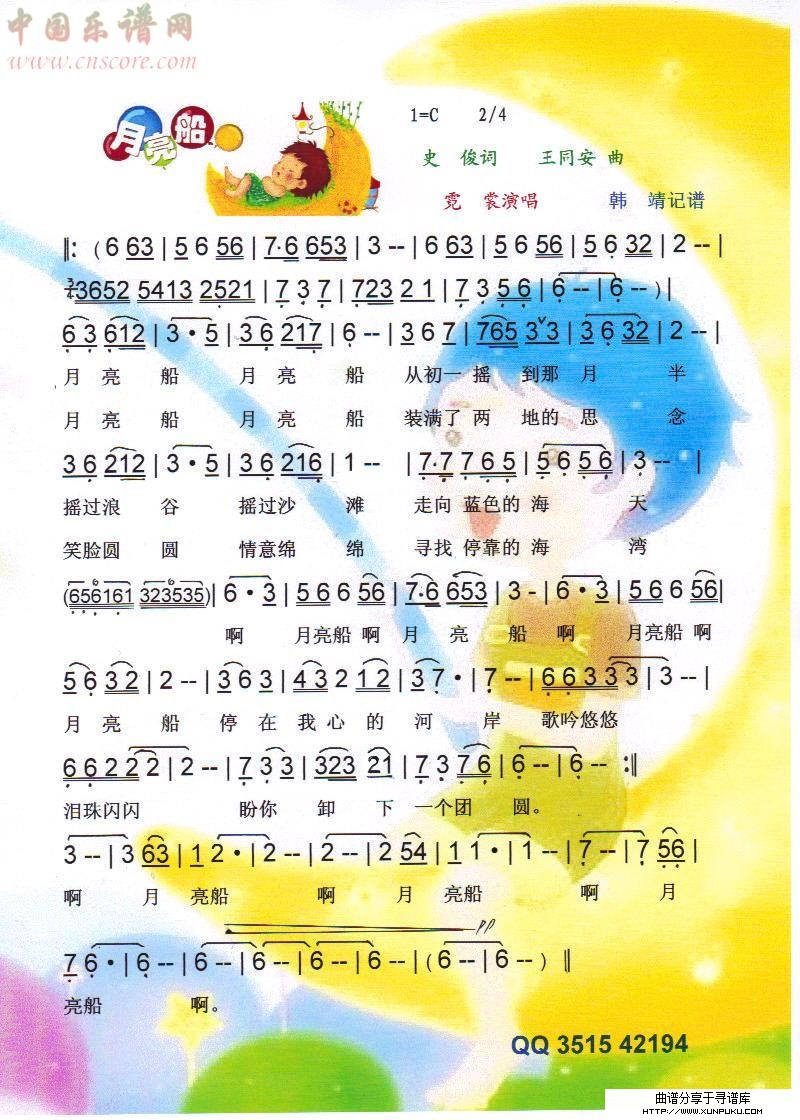 中国乐谱网
www.cnscore.com
月亮船
1=C 2/4
史 俊词 王同安 曲
霓 裳演唱 韩 靖记谱
‖: ( 6 63 | 5 6 56 | 7·6 653 | 3 -- | 6 63 | 5 6 56 | 5 6 32 | 2 -- |
3652 5413 2521 | 7 3 7 | 723 2 1 | 7 3 5 6 | 6 -- | 6 -- ) |
6 3 612 | 3 · 5 | 3 6 217 | 6 -- | 3 6 7 | 765 3 3 | 3 6 32 | 2 -- |
月 亮 船 月 亮 船 从初一 摇 到那 月 半
月 亮 船 月 亮 船 装满了 两 地的 思 念
3 6 212 | 3 · 5 | 3 6 216 | 1 -- | 7·7 7 6 5 | 5 6 5 6 | 3 -- |
摇过浪 谷 摇过沙 滩 走向 蓝色的 海 天
笑脸圆 圆 情意绵 绵 寻找 停靠的 海 湾
(656161 323535) | 6 · 3 | 5 6 6 56 | 7·6 653 | 3 - | 6 · 3 | 5 6 6 56 |
啊 月亮船 啊 月 亮 船 啊 月亮船 啊
5 6 32 | 2 -- | 3 6 3 | 4 3 2 1 2 | 3 7 · | 7 -- | 6 6 3 3 3 | 3 -- |
月 亮 船 停 在 我 心 的 河 岸 歌吟悠悠
6 6 2 2 2 | 2 -- | 7 3 3 | 323 21 | 7 3 7 6 | 6 -- | 6 -- :‖
泪珠闪闪 盼你 卸 下 一个团 圆。
3 -- | 3 63 | 1 2 · | 2 -- | 2 -- | 2 54 | 1 1 · | 1 -- | 7 -- | 7 56 |
啊 月 亮船 啊 月 亮船 啊 月
pp
7 6 · | 6 -- | 6 -- | 6 -- | 6 -- | 6 -- | ( 6 -- | 6 -- ) ‖
亮船 啊。
QQ 3515 42194
曲谱分享于寻谱库
HTTP://WWW.XUNPUKU.COM